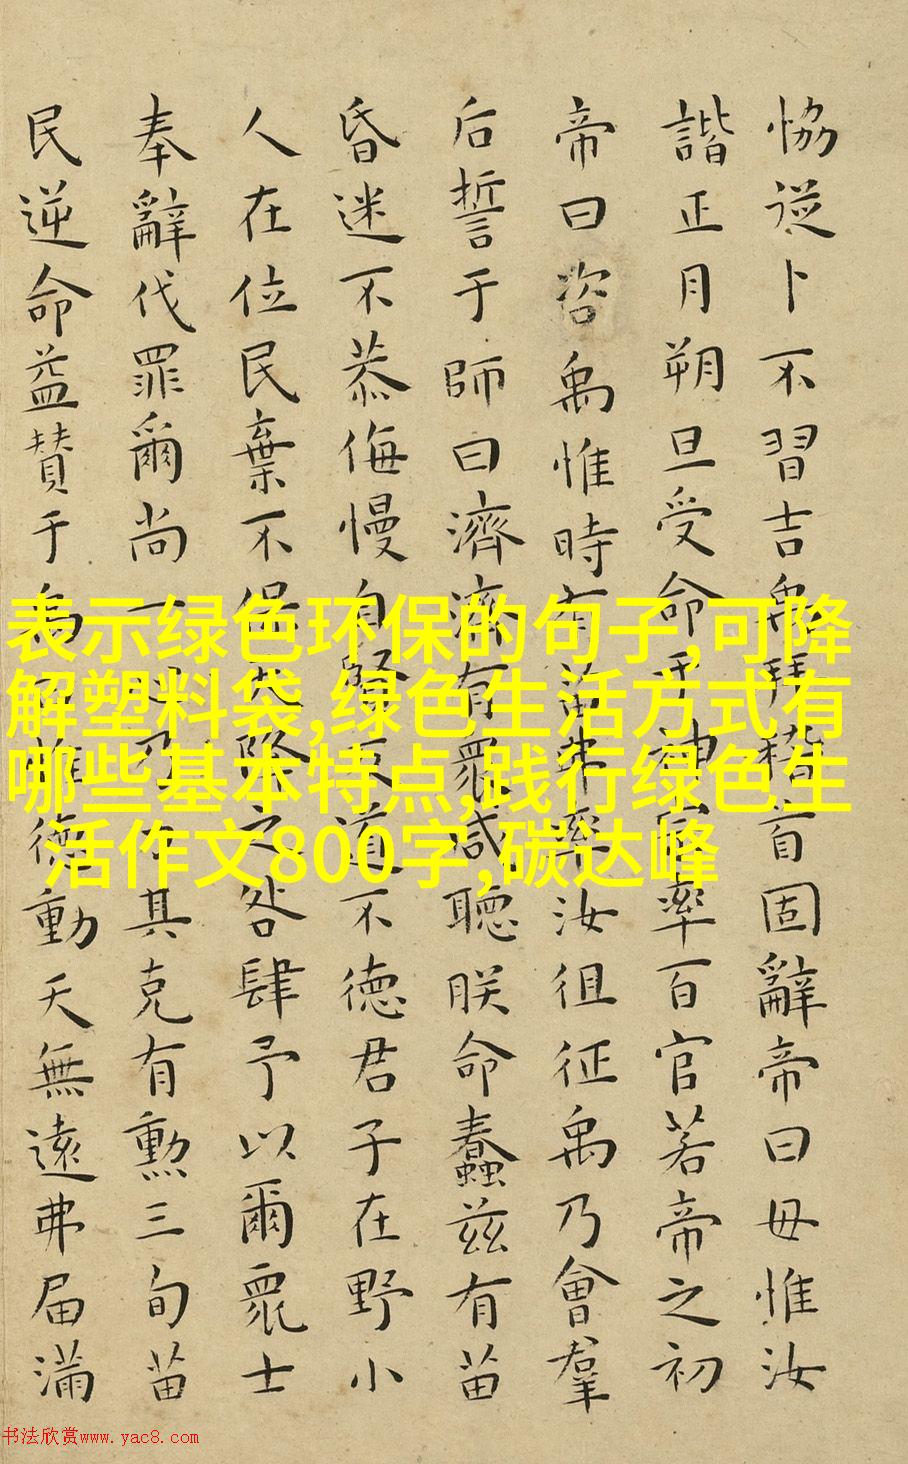 恊從卜不習吉禹拜稽首固辭帝曰毋惟汝
諧正月朔旦受命于神宗率百官若帝之初
帝曰咨禹惟時有苗弗率汝徂征禹乃會羣
后誓于師曰濟濟有眾咸聽朕命蠢茲有苗
昏迷不恭侮慢自賢反道不徳君子在野小
人在位民棄不保天降之咎肆予以爾眾士
奉辭伐罪爾尚一其克有勲三旬苗
民逆命益賛于禹曰惟徳動天無遠弗届滿
表示绿色环保的句子,可降
解塑料袋,绿色生活方式有
哪些基本特点,践行绿色生
活作文800字,碳达峰
书法欣赏www.yac8.com